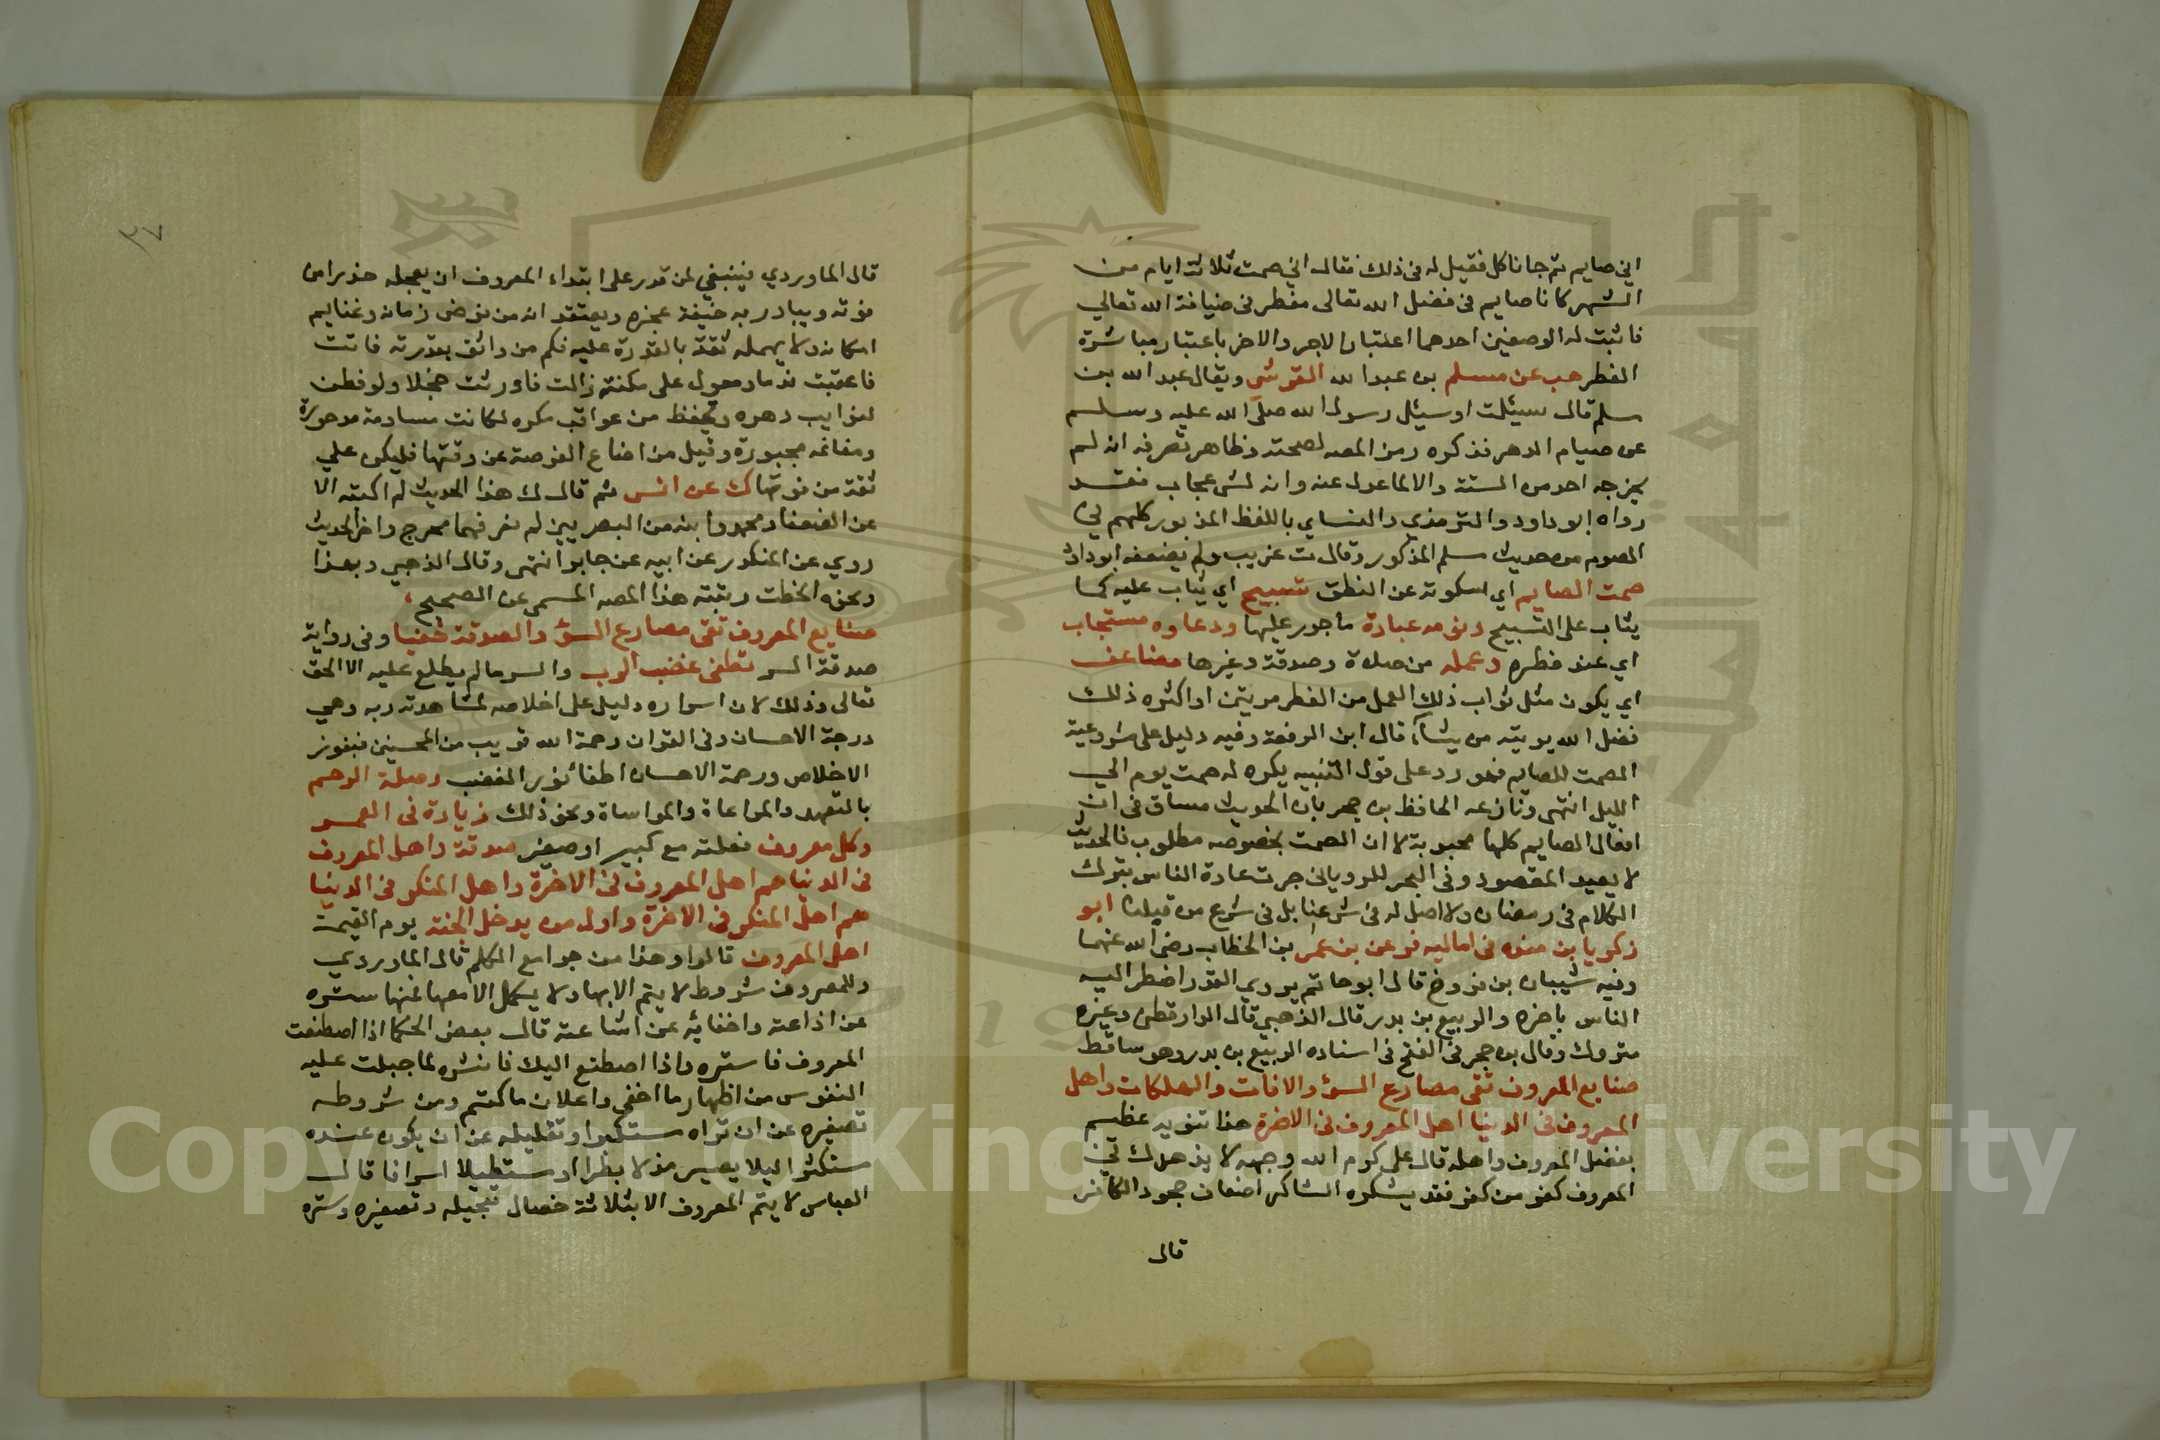 اني صايم ثم جا فاكل فقيل له في ذلك فقال اني صمت ثلاثة ايام من
الشهر فانا صايم في فضل الله تعالى مفطر في ضيافة الله تعالي
فاثبت له الوصفين احدهما اعتبار الاجر والاخر باعتبار مباشرة
الفطر هب عن مسلم بن عبد الله القرشي ويقال عبد الله بن
مسلم قال سيئلت او سيئل رسول الله صلى الله عليه وسلم
عن صيام الدهر فذكره رمز المصه لصحته وظاهر تصرفه انه لم
يخرجه احد من الستة والا لما عدل عنه وانه لشي عجاب فقد
رواه ابو داود والترمذي والنساي باللفظ المذبور كلهم في
الصوم من حديث مسلم المذكور وقال ت غريب ولم يضعفه ابو داود
صمت الصايم اي سكوته عن النطق تسبيح اي يثاب عليه كما
يثاب على التسبيح ونومه عبادة ماجور عليها ودعاوه مستجاب
اي عند فطره وعمله من صلاة وصدقة وغيرها مضاعف
اي يكون مثل ثواب ذلك العمل من الفطر مرتين او اكثر ذلك
فضل الله يوتيه من يشآء قال ابن الرفعة وفيه دليل على مشروعية
الصمت للصايم فهو رد على قول التنبيه يكره له صمت يوم الي
الليل انتهى ونازعه الحافظ بن حجر بان الحديث مساق في ان
افعال الصايم كلها محبوبة لا ان الصمت بخصوصه مطلوب فالحديث
لا يفيد المقصود وفي البحر للروياني جرت عادة الناس بترك
الكلام في رمضان ولا اصل له في شرعنا بل في شرع من قبلنا ابو
زكريا بن منده في اماليه فر عن بن عمر بن الخطاب رضي الله عنهما
وفيه شيبان بن فروخ قال ابو حاتم يري القدر اضطر اليه
الناس باخره والربيع بن بدر قال الذهبي قال الدارقطني وغيره
متروك وقال بن حجر في الفتح في اسناده الربيع بن بدر وهو ساقط
صنايع المعروف تقي مصارع السؤ والافات والهلكات واهل
المعروف في الدنيا اهل المعروف في الاخرة هذا تنويه عظيم
بفضل المعروف واهله قال علي كرم الله وجهه لا يزهدك في
المعروف كفر من كفر فقد يشكره الشاكر اضعاف جحود الكافر
قال
٣٧
قال الماوردي فينبغي لمن قدر على ابتداء المعروف ان يعجله حذرا من
فوته ويبادر به خيفة عجزه ويعتقد انه من فرص زمانه وغنايم
امكانه ولا يهمله ثقة بالقدرة عليه فكم من واثق بقدرته فاتت
فاعقبت ندما ومعول على مكنة زالت فاورثت خجلا ولو فطن
لنوايب دهره وتحفظ من عواقب مكره لكانت مغارمه مدحورة
ومغانمه مجبورة وقيل من اضاع الفرصة عن وقتها فليكن علي
ثقة من فوتها ك عن انس ثم قال ك هذا الحديث لم اكتبه الا
عن الصفار ومحمد وابنه من البصريين لم نعرفهما بجرح واخر الحديث
روي عن المنكدر عن ابيه عن جابر انتهى وقال الذهبي وبهذا
ونحوه انحطت رتبته هذا المصه المسمى عن الصحيح
صنايع المعروف تقى مصارع السؤ والصدقة خفيا وفى رواية
صدقة السر تطفى غضب الرب والسر ما لم يطلع عليه الا الحق
تعالى وذلك لان اسراره دليل على اخلاصه لمشاهدته ربه وهي
درجة الاحسان وفى القران رحمة الله قريب من المحسنين فبنور
الاخلاص ورحمة الاحسان اطفا نور الغضب وصلة الرحم
بالتعهد والمراعاة والمواساة ونحو ذلك زيادة فى العمر
وكل معروف فعلته مع كبير او صغير صدقة واهل المعروف
فى الدنيا هم اهل المعروف فى الاخرة واهل المنكر فى الدنيا
هم اهل المنكر فى الاخرة واول من يدخل الجنة يوم القيمة
اهل المعروف قالوا وهذا من جوامع الكلم قال الماوردي
وللمعروف شروط لا يتم الا بها ولا يكمل الا معها فمنها ستره
عن اذاعته واخفائه عن اشاعته قال بعض الحكما اذا اصطنعت
المعروف فاستره واذا اصطنع اليك فانشره لما جبلت عليه
النفوس من اظهار ما اخفي واعلان ما كتم ومن شروطه
تصغيره عن ان تراه مستكبرا وتقليله عن ان يكون عنده
مستكثرا ليلا يصير مذلا بطرا او مستطيلا اسرافا قال
العباس لا يتم المعروف الا بثلاثة خصال تعجيله وتصغيره وستره
Copyright © King Saud University